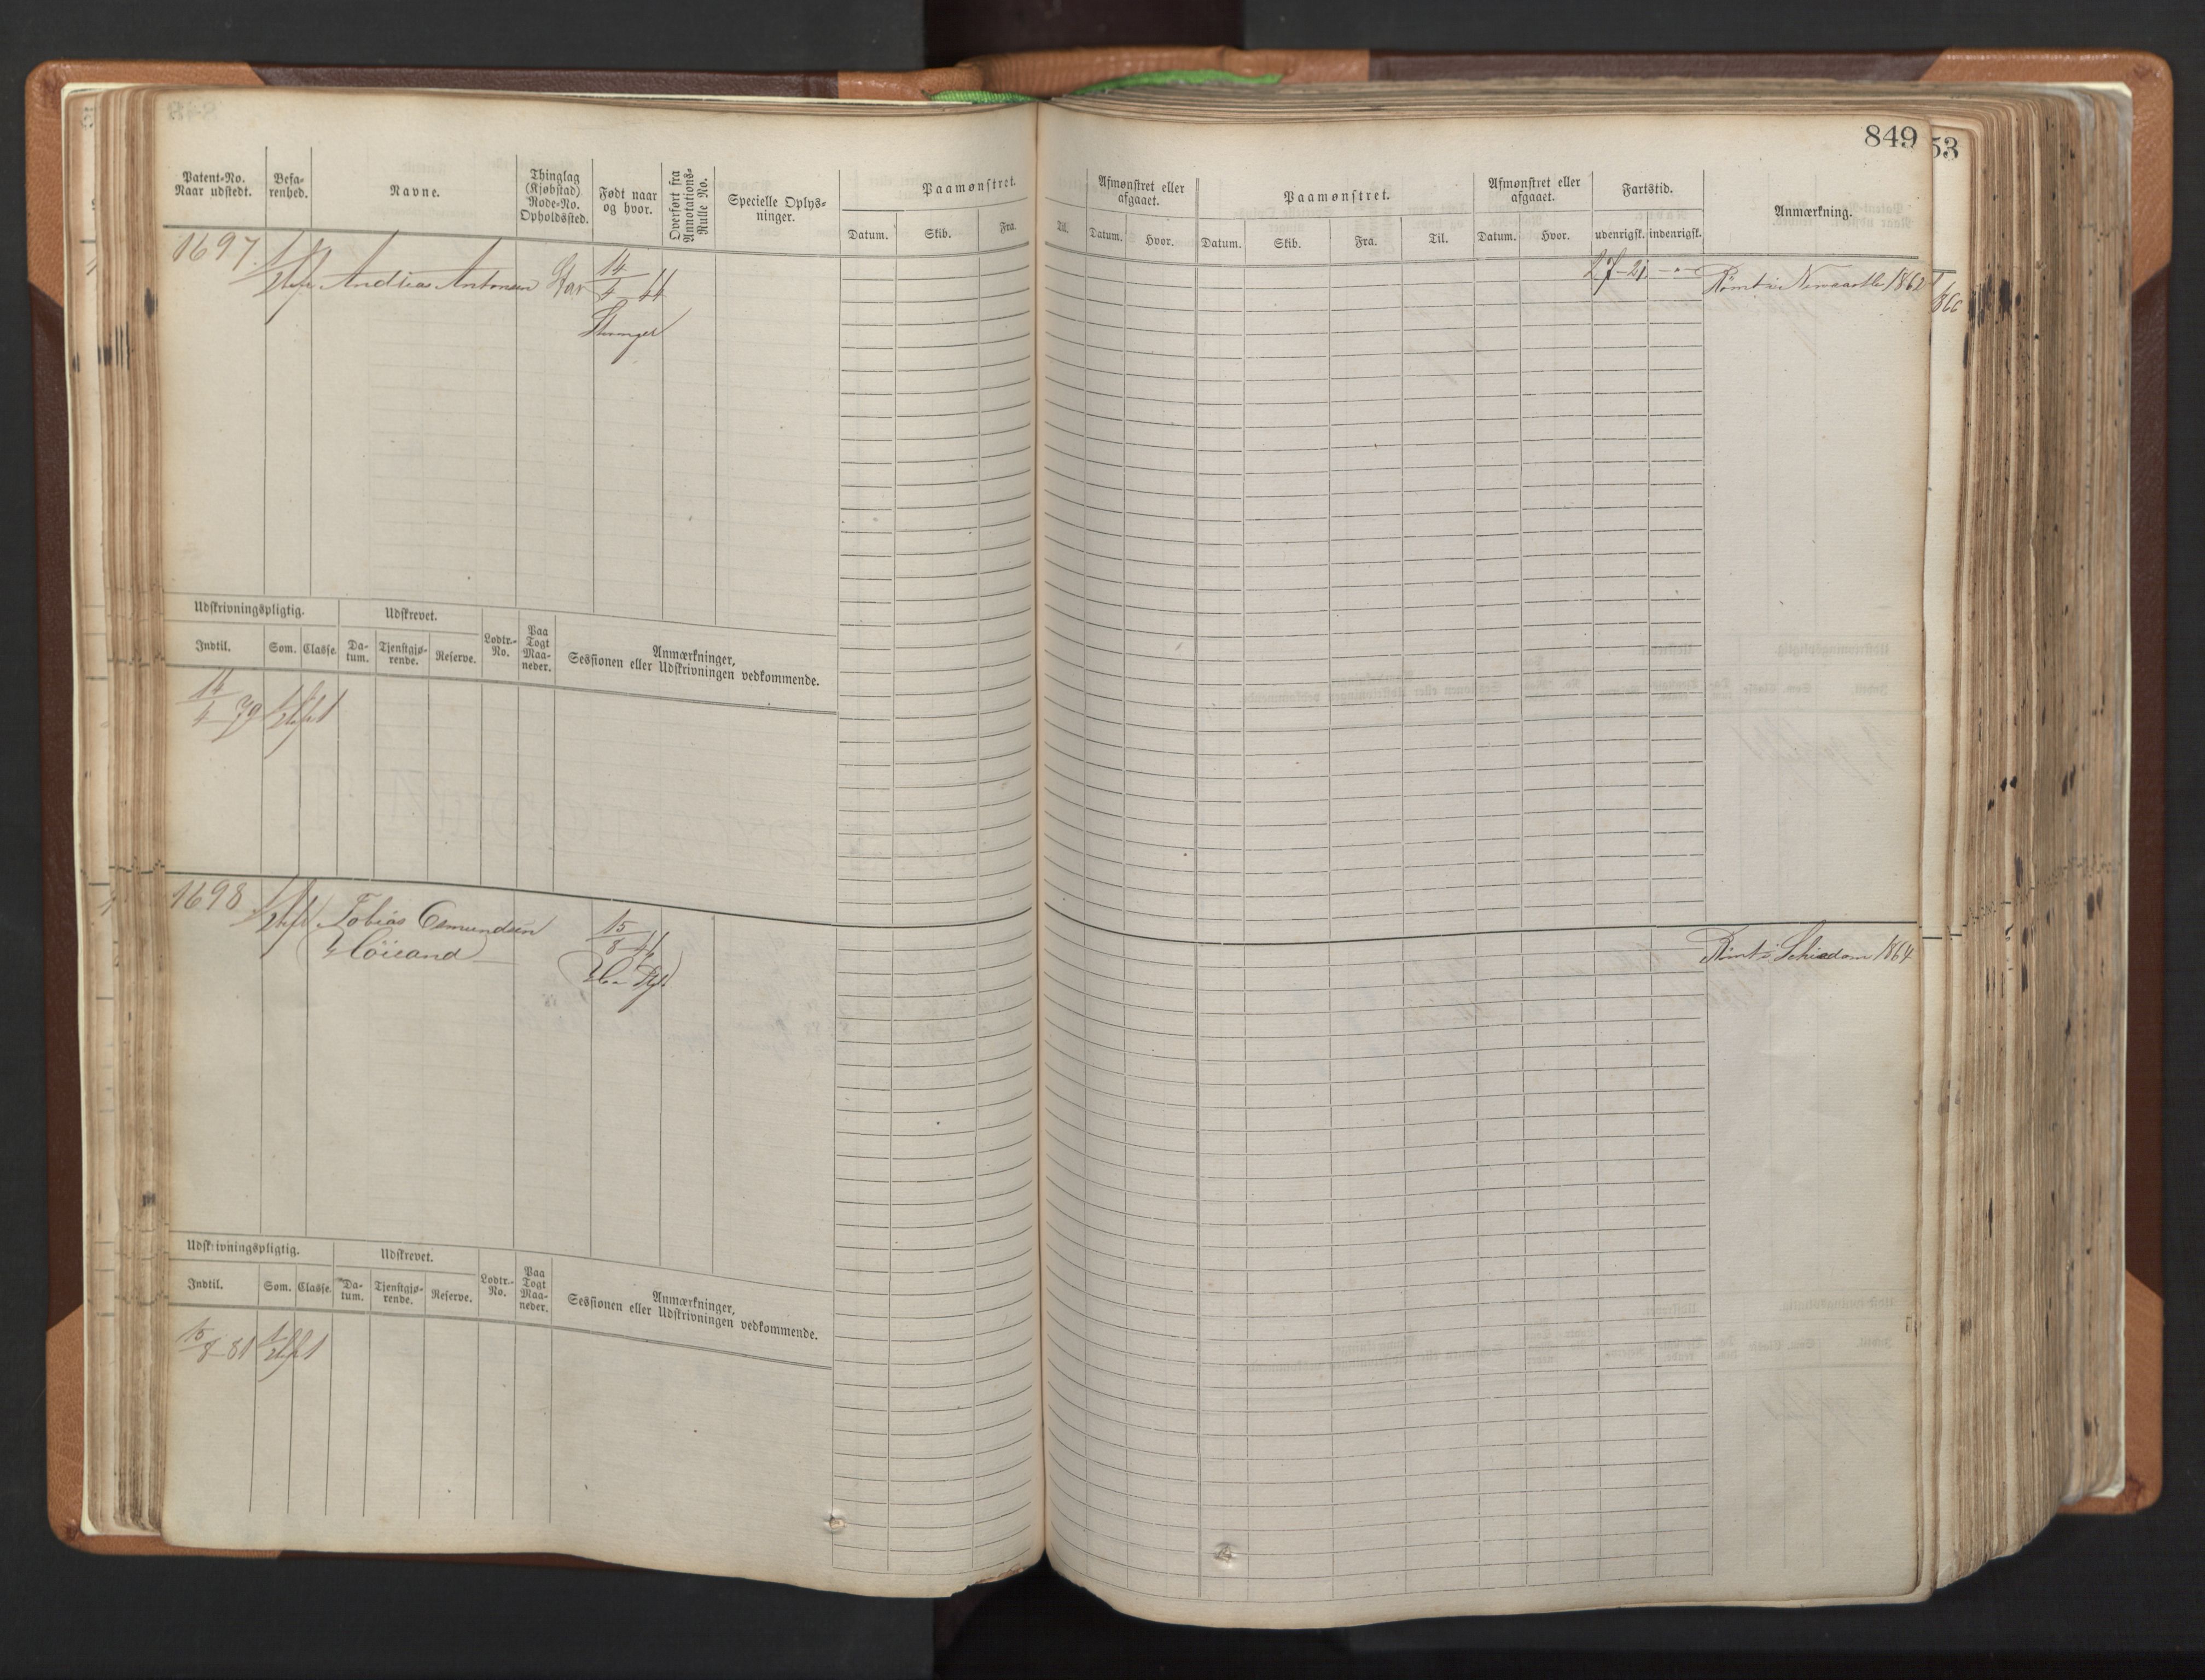 849
53
Patent-No.
Naar udstedt.
Befa-
renhed.
Navne.
Thinglag
(Kjøbstad)
Rode-No.
Opholdssted.
Født naar
og hvor.
Overført fra
Annotations-
Rulle No.
Specielle Oplys-
ninger.
Paamønstret.
Datum.
Skib.
Fra.
Til.
Afmønstret eller
afgaaet.
Datum.
Hvor.
Paamønstret.
Datum.
Skib.
Fra.
Til.
Afmønstret eller
afgaaet.
Datum.
Hvor.
Fartstid.
udenrigsk.
indenrigsk.
Anmærkning.
1697
Andreas Antonsen
14
4 44
Stvanger
27-21
Rømt i Newcastle 1862
Udskrivningspligtig.
Udskrevet.
Indtil.
Søm.
Classe.
Da-
tum.
Tjenstgjø-
rende.
Reserve.
Lodtr.-
No.
Paa
Togt
Maa-
neder.
Anmærkninger,
Sessionen eller Udskrivningen vedkommende.
14
4 79
1698
Tobias Osmundsen
15
8
Rømt i Schiedam 1864
Udskrivningspligtig.
Udskrevet.
Indtil.
Søm.
Classe.
Da-
tum.
Tjenstgjø-
rende.
Reserve.
Lodtr.-
No.
Paa
Togt
Maa-
neder.
Anmærkninger,
Sessionen eller Udskrivningen vedkommende.
15
8 81